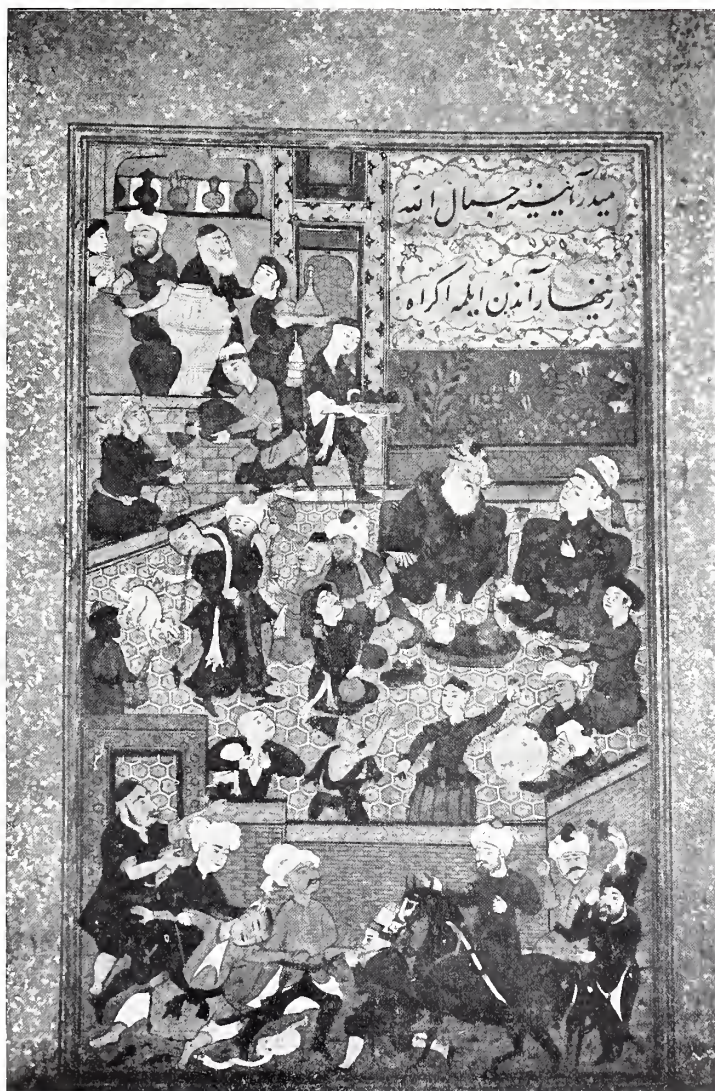 میدر آیینهٔ جمال الله
زینهار آندن ایلمه اکراه